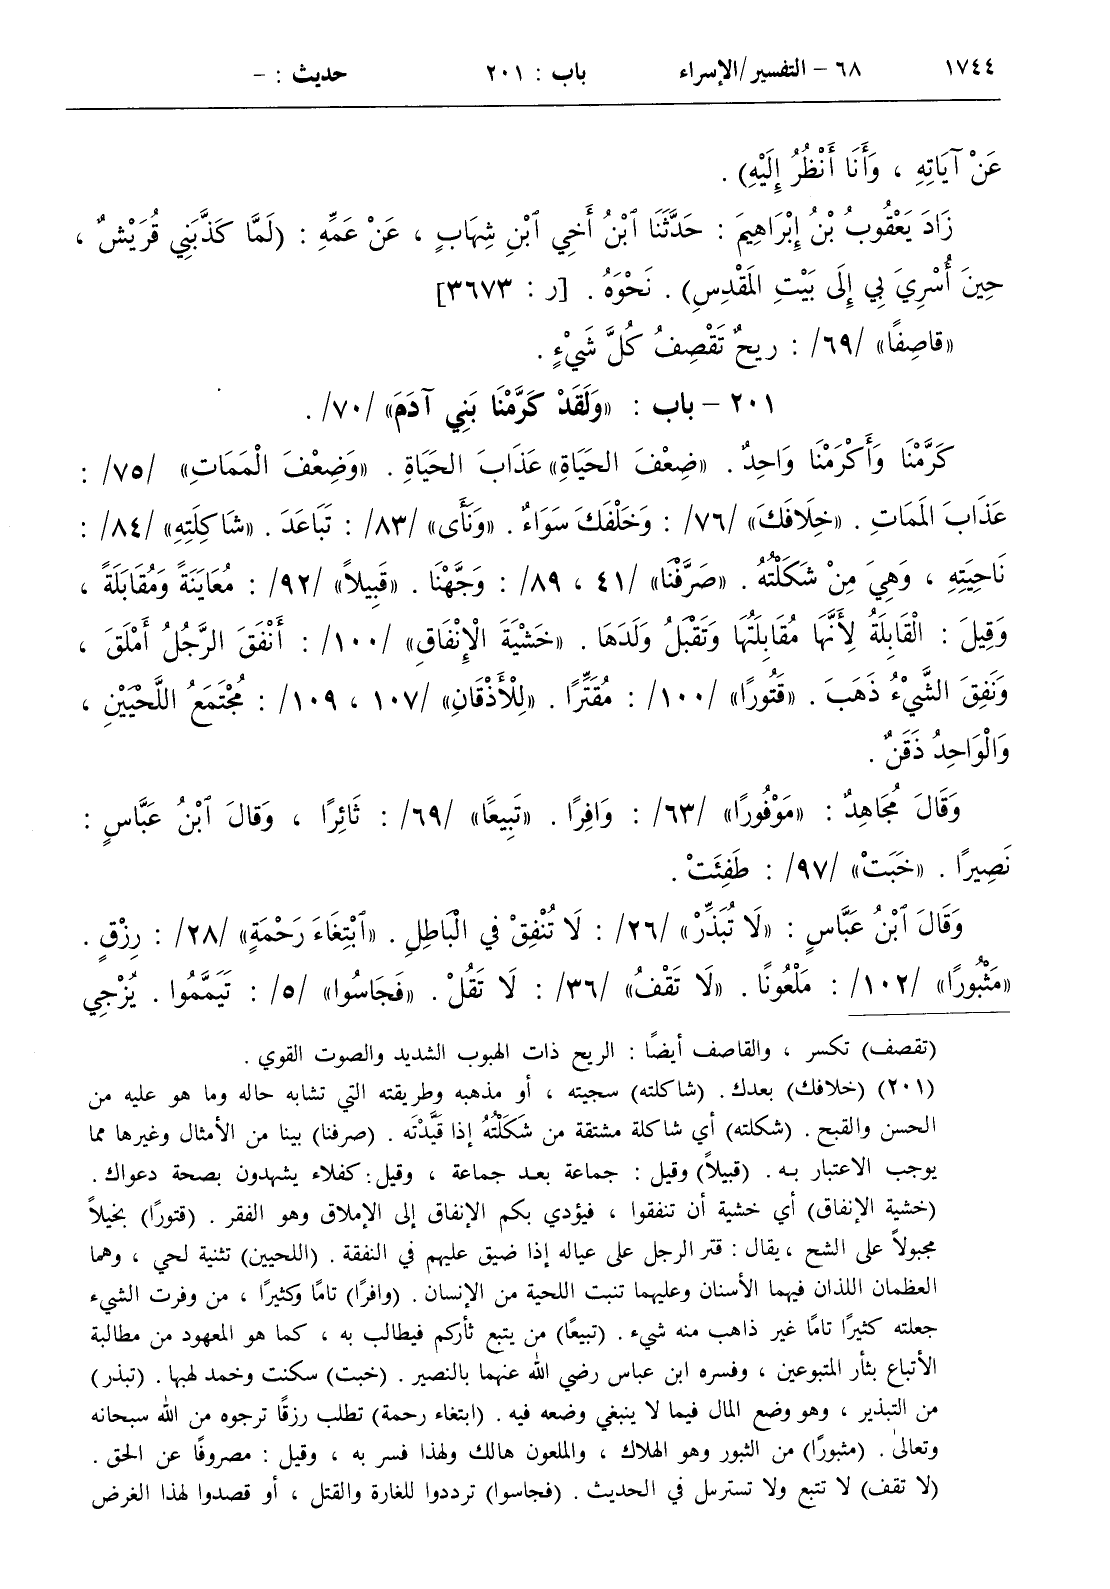 ١٧٤٤ ٦٨ – التفسير/الإسراء باب : ٢٠١ حديث : –
عَنْ آيَاتِهِ ، وَأَنَا أَنْظُرُ إِلَيْهِ) .
زَادَ يَعْقُوبُ بْنُ إِبْرَاهِيمَ : حَدَّثَنَا ٱبْنُ أَخِي ٱبْنِ شِهَابٍ ، عَنْ عَمِّهِ : (لَمَّا كَذَّبَنِي قُرَيْشٌ ،
حِينَ أُسْرِيَ بِي إِلَى بَيْتِ المَقْدِسِ) . نَحْوَهُ . [ر : ٣٦٧٣]
«قاصِفًا» /٦٩/ : رِيحٌ تَقْصِفُ كُلَّ شَيْءٍ .
٢٠١ – باب : «وَلَقَدْ كَرَّمْنَا بَنِي آدَمَ» /٧٠/ .
كَرَّمْنَا وَأَكْرَمْنَا وَاحِدٌ . «ضِعْفَ الحَيَاةِ» عَذَابَ الحَيَاةِ . «وَضِعْفَ الْمَمَاتِ» /٧٥/ :
عَذَابَ المَمَاتِ . «خِلَافَكَ» /٧٦/ : وَخَلْفَكَ سَوَاءٌ . «وَنَأَى» /٨٣/ : تَبَاعَدَ . «شَاكِلَتِهِ» /٨٤/ :
نَاحِيَتِهِ ، وَهِيَ مِنْ شَكَلْتُهُ . «صَرَّفْنَا» /٤١ ، ٨٩/ : وَجَّهْنَا . «قَبِيلاً» /٩٢/ : مُعَايَنَةً وَمُقَابَلَةً ،
وَقِيلَ : الْقَابِلَةُ لِأَنَّهَا مُقَابِلَتُهَا وَتَقْبَلُ وَلَدَهَا . «خَشْيَةَ الْإِنْفَاقِ» /١٠٠/ : أَنْفَقَ الرَّجُلُ أَمْلَقَ ،
وَنَفِقَ الشَّيْءُ ذَهَبَ . «قَتُورًا» /١٠٠/ : مُقَتِّرًا . «لِلْأَذْقَانِ» /١٠٧ ، ١٠٩/ : مُجْتَمَعُ اللَّحْيَيْنِ ،
وَالْوَاحِدُ ذَقَنٌ .
وَقَالَ مُجَاهِدٌ : «مَوْفُورًا» /٦٣/ : وَافِرًا . «تَبِيعًا» /٦٩/ : ثَائِرًا ، وَقالَ ٱبْنُ عَبَّاسٍ :
نَصِيرًا . «خَبَتْ» /٩٧/ : طَفِئَتْ .
وَقَالَ ٱبْنُ عَبَّاسٍ : «لَا تُبَذِّرْ» /٢٦/ : لَا تُنْفِقْ فِي الْبَاطِلِ . «ٱبْتِغَاءَ رَحْمَةٍ» /٢٨/ : رِزْقٍ .
«مَثْبُورًا» /١٠٢/ : مَلْعُونًا . «لَا تَقْفُ» /٣٦/ : لَا تَقُلْ . «فَجَاسُوا» /٥/ : تَيَمَّمُوا . يُزْجِي
(تقصف) تكسر ، والقاصف أيضًا : الريح ذات الهبوب الشديد والصوت القوي .
(٢٠١) (خلافك) بعدك . (شاكلته) سجيته ، أو مذهبه وطريقته التي تشابه حاله وما هو عليه من
الحسن والقبح . (شكلته) أي شاكلة مشتقة من شَكَلْتُهُ إذا قَيَّدْتَه . (صرفنا) بينا من الأمثال وغيرها مما
يوجب الاعتبار به . (قبيلاً) وقيل : جماعة بعد جماعة ، وقيل : كفلاء يشهدون بصحة دعواك .
(خشية الإنفاق) أي خشية أن تنفقوا ، فيؤدي بكم الإنفاق إلى الإملاق وهو الفقر . (قتورًا) بخيلاً
مجبولاً على الشح ، يقال : قتر الرجل على عياله إذا ضيق عليهم في النفقة . (اللحيين) تثنية لحي ، وهما
العظمان اللذان فيهما الأسنان وعليهما تنبت اللحية من الإنسان . (وافرًا) تامًا وكثيرًا ، من وفرت الشيء
جعلته كثيرًا تامًا غير ذاهب منه شيء . (تبيعًا) من يتبع ثأركم فيطالب به ، كما هو المعهود من مطالبة
الأتباع بثأر المتبوعين ، وفسره ابن عباس رضي الله عنهما بالنصير . (خبت) سكنت وخمد لهبها . (تبذر)
من التبذير ، وهو وضع المال فيما لا ينبغي وضعه فيه . (ابتغاء رحمة) تطلب رزقًا ترجوه من الله سبحانه
وتعالى . (مثبورًا) من الثبور وهو الهلاك ، والملعون هالك ولهذا فسر به ، وقيل : مصروفًا عن الحق .
(لا تقف) لا تتبع ولا تسترسل في الحديث . (فجاسوا) ترددوا للغارة والقتل ، أو قصدوا لهذا الغرض